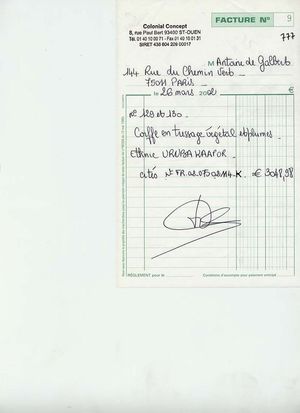 Colonial Concept
8, rue Paul Bert 93400 ST-OUEN
Tél. 01 40 10 00 71 - Fax 01 40 10 01 31
SIRET 438 804 209 00017
FACTURE N° 9
777
M Antoine de Galbert
144 Rue du Chemin Vert
75011 PARIS
26 mars 2002
n° 129 et 130
Coiffe en tussage végétal et plumes
Ethnie URUBU KAAPOR
cités N° FR.02.075.02114-K € 3048,98
RÈGLEMENT pour le
Conditions d'escompte pour paiement anticipé